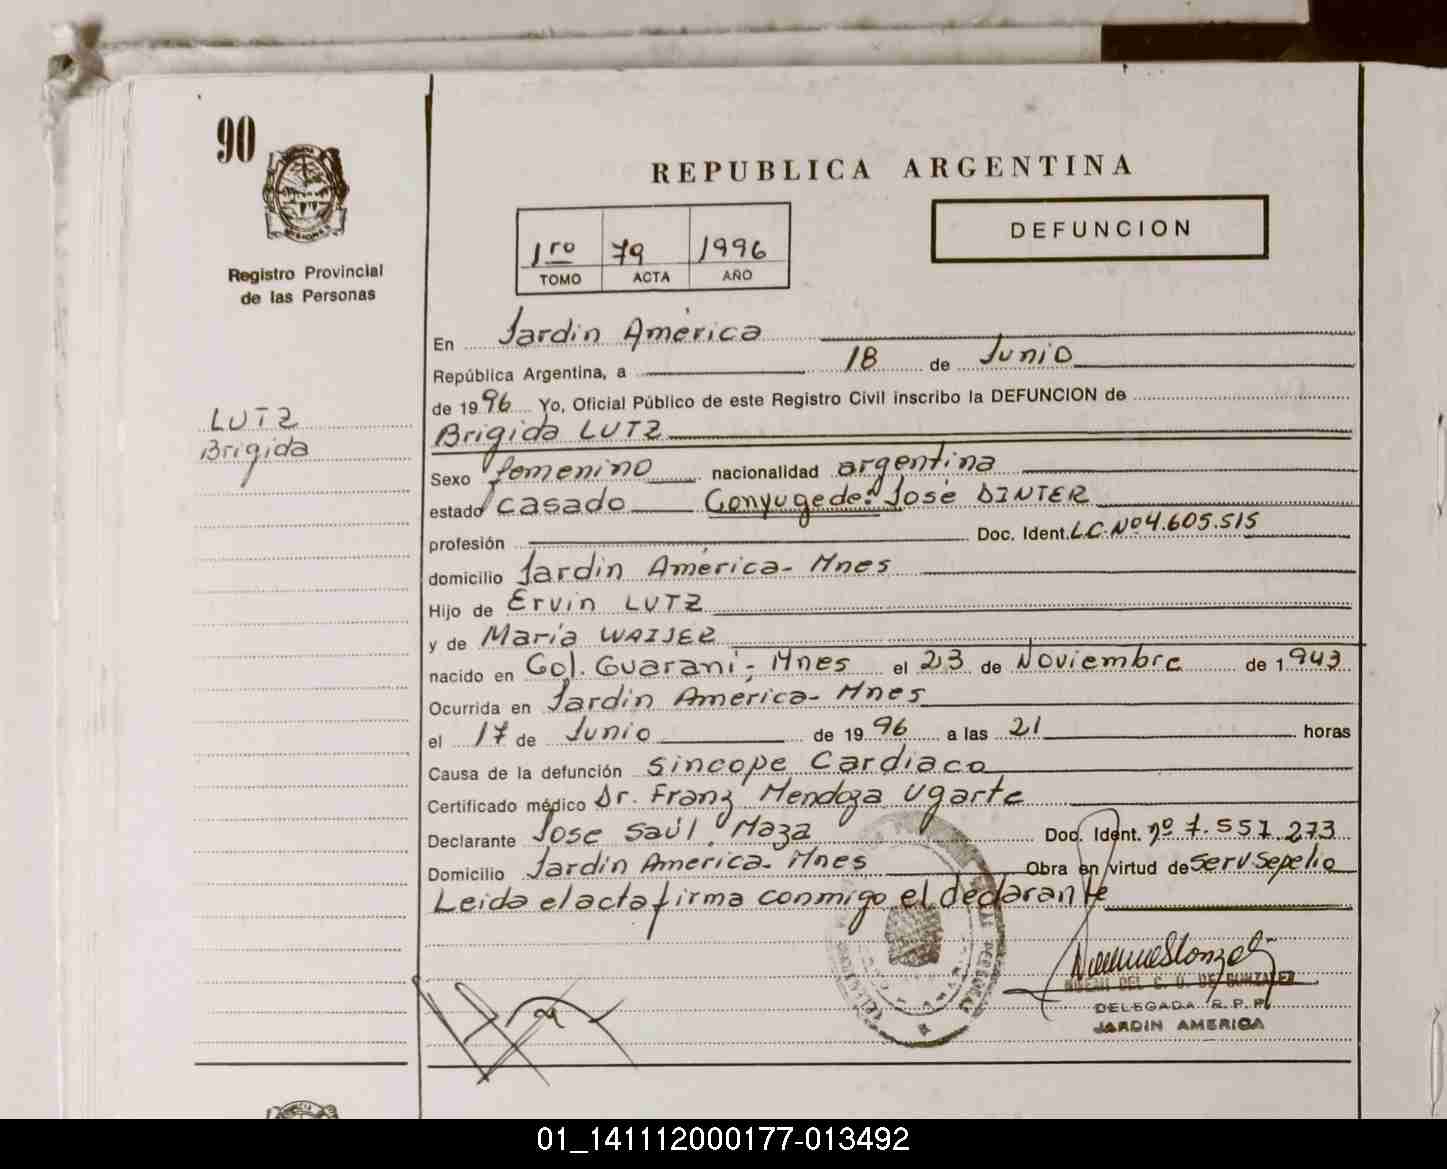 90
REPUBLICA ARGENTINA
DEFUNCION
1ro 79 1996
TOMO ACTA AÑO
Registro Provincial
de las Personas
LUTZ
Brigida
En Jardin América
República Argentina, a 18 de Junio
de 1996 Yo, Oficial Público de este Registro Civil inscribo la DEFUNCION de
Brigida LUTZ
Sexo femenino nacionalidad argentina
estado casado Conyuge de: José DINTER
profesión Doc. Ident. L.C. Nº 4.605.515
domicilio Jardin América- Mnes
Hijo de Ervin LUTZ
y de María WAISER
nacido en Col. Guaraní, Mnes el 23 de Noviembre de 1943
Ocurrida en Jardin America- Mnes
el 17 de Junio de 1996 a las 21 horas
Causa de la defunción Sincope Cardiaco
Certificado médico Dr. Franz Mendoza Ugarte
Declarante Jose Saúl Maza Doc. Ident. nº 7.551.273
Domicilio Jardin America- Mnes Obra en virtud de Serv Sepelio
Leida el acta firma conmigo el declarante
DEL C. D. DE GONZALEZ
DELEGADA R. P. P.
JARDIN AMERICA
01_141112000177-013492